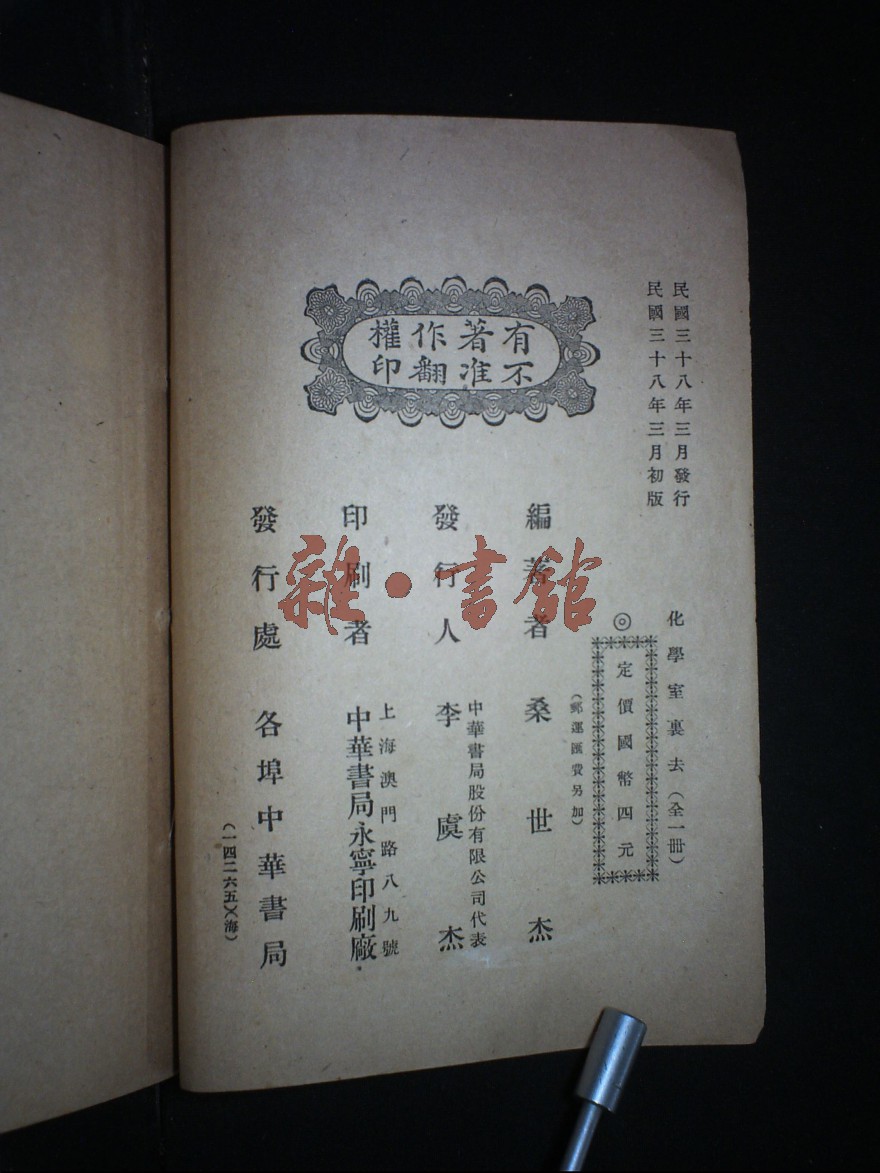 民國三十八年三月發行
民國三十八年三月初版
有著作權
不准翻印
化學室裏去（全一冊）
◎定價國幣四元
（郵運匯費另加）
編著者 桑世杰
中華書局股份有限公司代表
發行人 李虞杰
上海澳門路八九號
印刷者 中華書局永寧印刷廠
發行處 各埠中華書局
（一四二六五）（海）
雜·書館